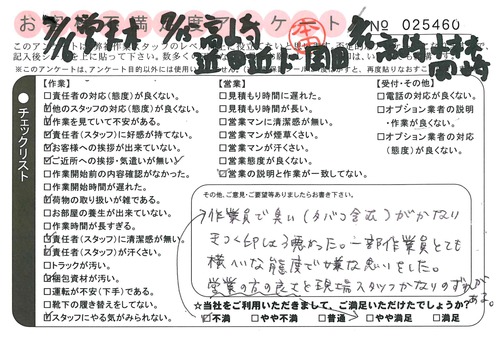 お客様不満足度アンケート
No 025460
7/6 営業本 7/5 宮崎
本
小林
岡崎
チェックリスト
【作業】
☑責任者の対応(態度)が良くない。
☑他のスタッフの対応(態度)が良くない。
☑作業を見ていて不安がある。
☑責任者(スタッフ)に好感が持てない。
☑お客様への挨拶が出来ていない。
☑ご近所への挨拶・気遣いが無い。
□作業開始前の内容確認がなかった。
□作業開始時間が遅れた。
☑荷物の取り扱いが雑である。
□お部屋の養生が出来ていない。
□作業時間が長すぎる。
☑責任者(スタッフ)に清潔感が無い。
☑責任者(スタッフ)が汗くさい。
□トラックが汚い。
☑梱包資材が汚い。
□運転が不安(下手)である。
□靴下の履き替えをしてない。
☑スタッフにやる気がみられない。
【営業】
□見積もり時間に遅れた。
□見積もり時間が長い。
□営業マンに清潔感が無い。
□営業マンが煙草くさい。
□営業マンが汗くさい。
□営業態度が良くない。
□営業の説明と作業が一致してない。
【受付・その他】
□電話の対応が良くない。
□オプション業者の説明・作業が良くない。
□オプション業者の対応(態度)が良くない。
その他、ご意見・ご要望等ありましたらお書き下さい。
作業員で臭い(タバコ含む)がかなり
きつく
一部作業員とても
横へいな態度で嫌な思いをした。
営業の方の良さと現場スタッフかなりのずれが
ある。
☆当社をご利用いただきまして、ご満足いただけたでしょうか?
☑不満 □やや不満 □普通 □やや満足 □満足